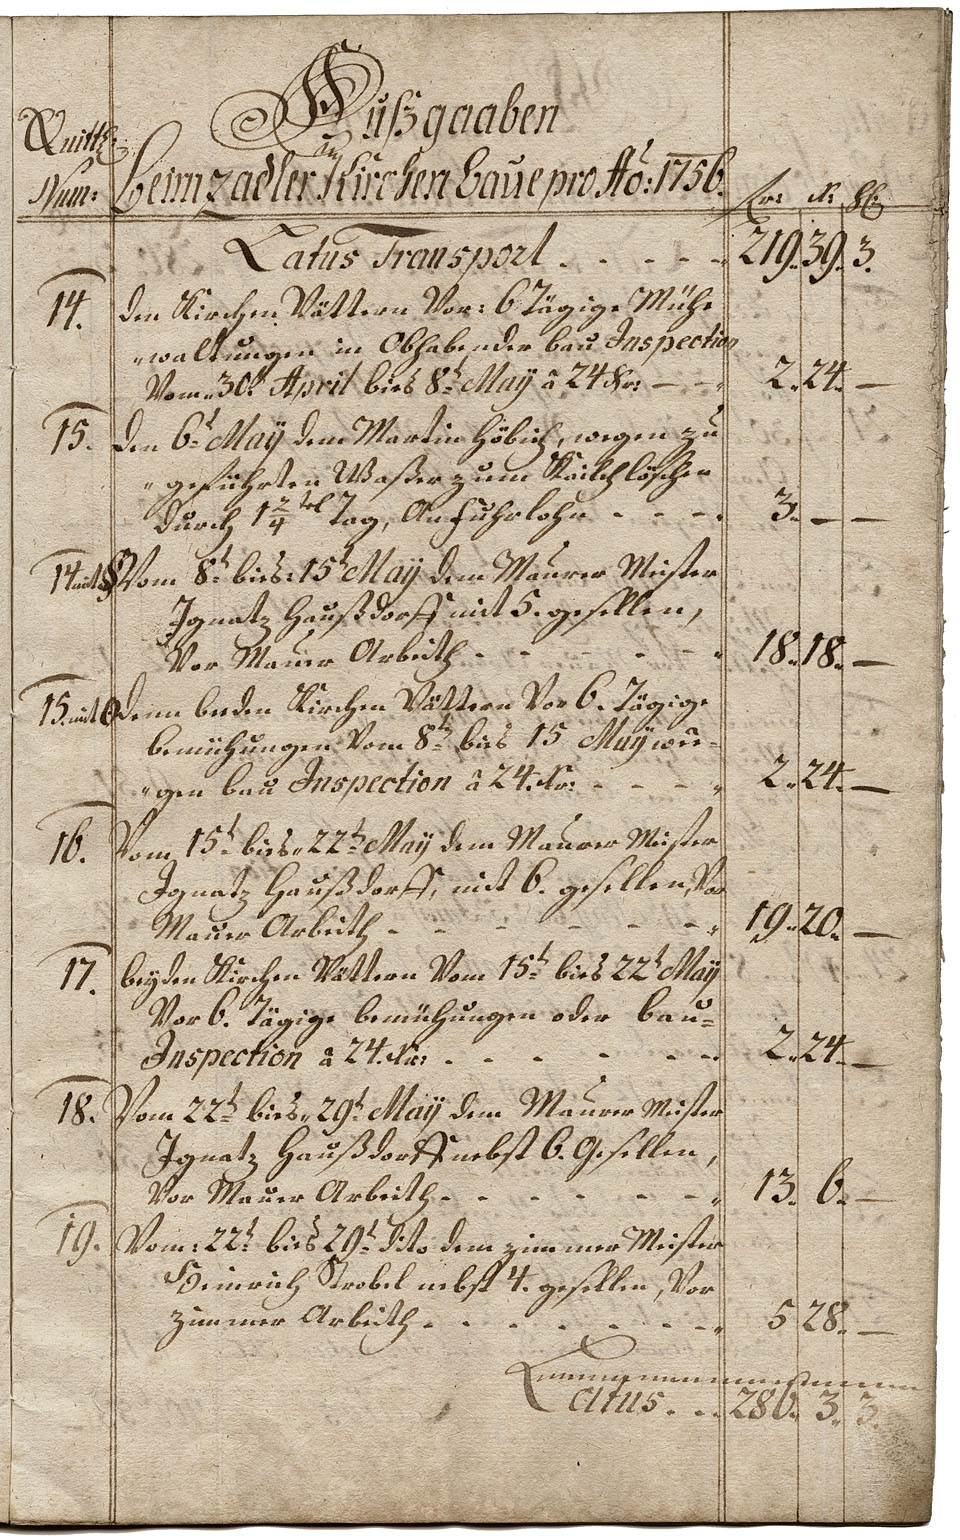 Außgaaben
Quitt:
Num: beim zadler Kirchen baue pro Aõ: 1756. fr: Kr: hl:
Latus Transport - - - - - 219. 39. 3.
14. den Kirchen Vättern Vor: 6 Tägige Mühe
"waltungen in Obhabender bau Inspection
Vom 30t April bies 8t May â 24 Kr: - - 2. 24. —
15. den 6t May dem Martin Höbich, wegen zu
"geführten Waßer zum Kalchlöschen
durch 1 2/4 tel Tag, An fuhrlohn - - - - 3. — —
14 mit Vom 8t bies: 15t May dem Maurer Meister
Ignatz Haußdorff mit 5. gesellen,
Vor Mauer Arbeith - - - - - - 18. 18. —
15. mit denn beeden Kirchen Vättern Vor 6. Tägige
bemühungen Vom 8t bies 15 May we=
"gen bau Inspection â 24. Kr: - - - - 2. 24. —
16. Vom 15t bies 22t May dem Maurer Meister
Ignatz Haußdorff, mit 6. gesellen, Vor
Mauer Arbeith - - - - - - - 19. 20. —
17. beyden Kirchen Vättern Vom 15t bies 22t May
Vor 6. Tägige bemühungen oder bau=
Inspection â 24. Kr: - - - - - - 2. 24. —
18. Vom 22t bies 29t May dem Maurer Meister
Ignatz Haußdorff nebst 6. Gesellen,
Vor Mauer Arbeith - - - - - - 13. 6. —
19. Vom: 22t bies 29t dito dem zimmer Meister
Heinrich Strobel nebst 4. gesellen, Vor
zimmer Arbeith - - - - - - - 5 28. —
Latus - - 286. 3. 3.